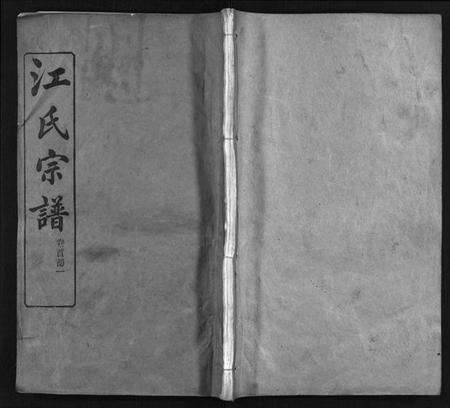 江氏宗譜
卷首節一